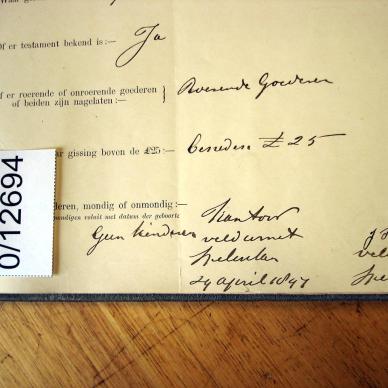 Of er testament bekend is:— Ja
Of er roerende of onroerende goederen
of beiden zijn nagelaten:— } Roerende Goederen
ar gissing boven de £25:— Beneden £25
deren, mondig of onmondig:—
met datum der geboorte
Geen kinderen
Kantoor
veldcornet
29 april 1897
0/12694